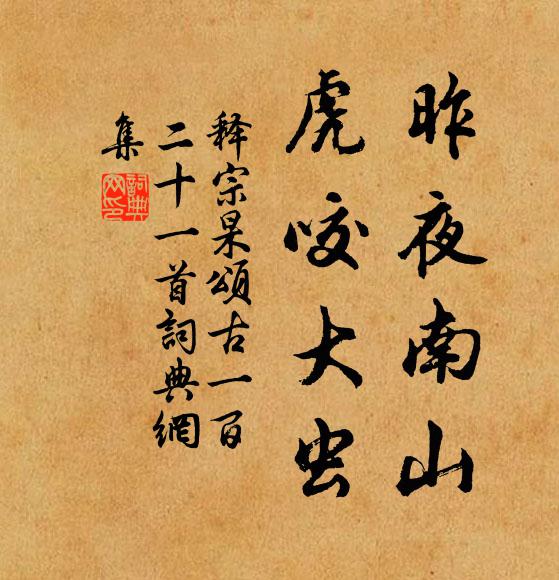 昨夜南山
虎咬大虫
释宗杲頌古一百
二十一首詞典網
集
詞典网印